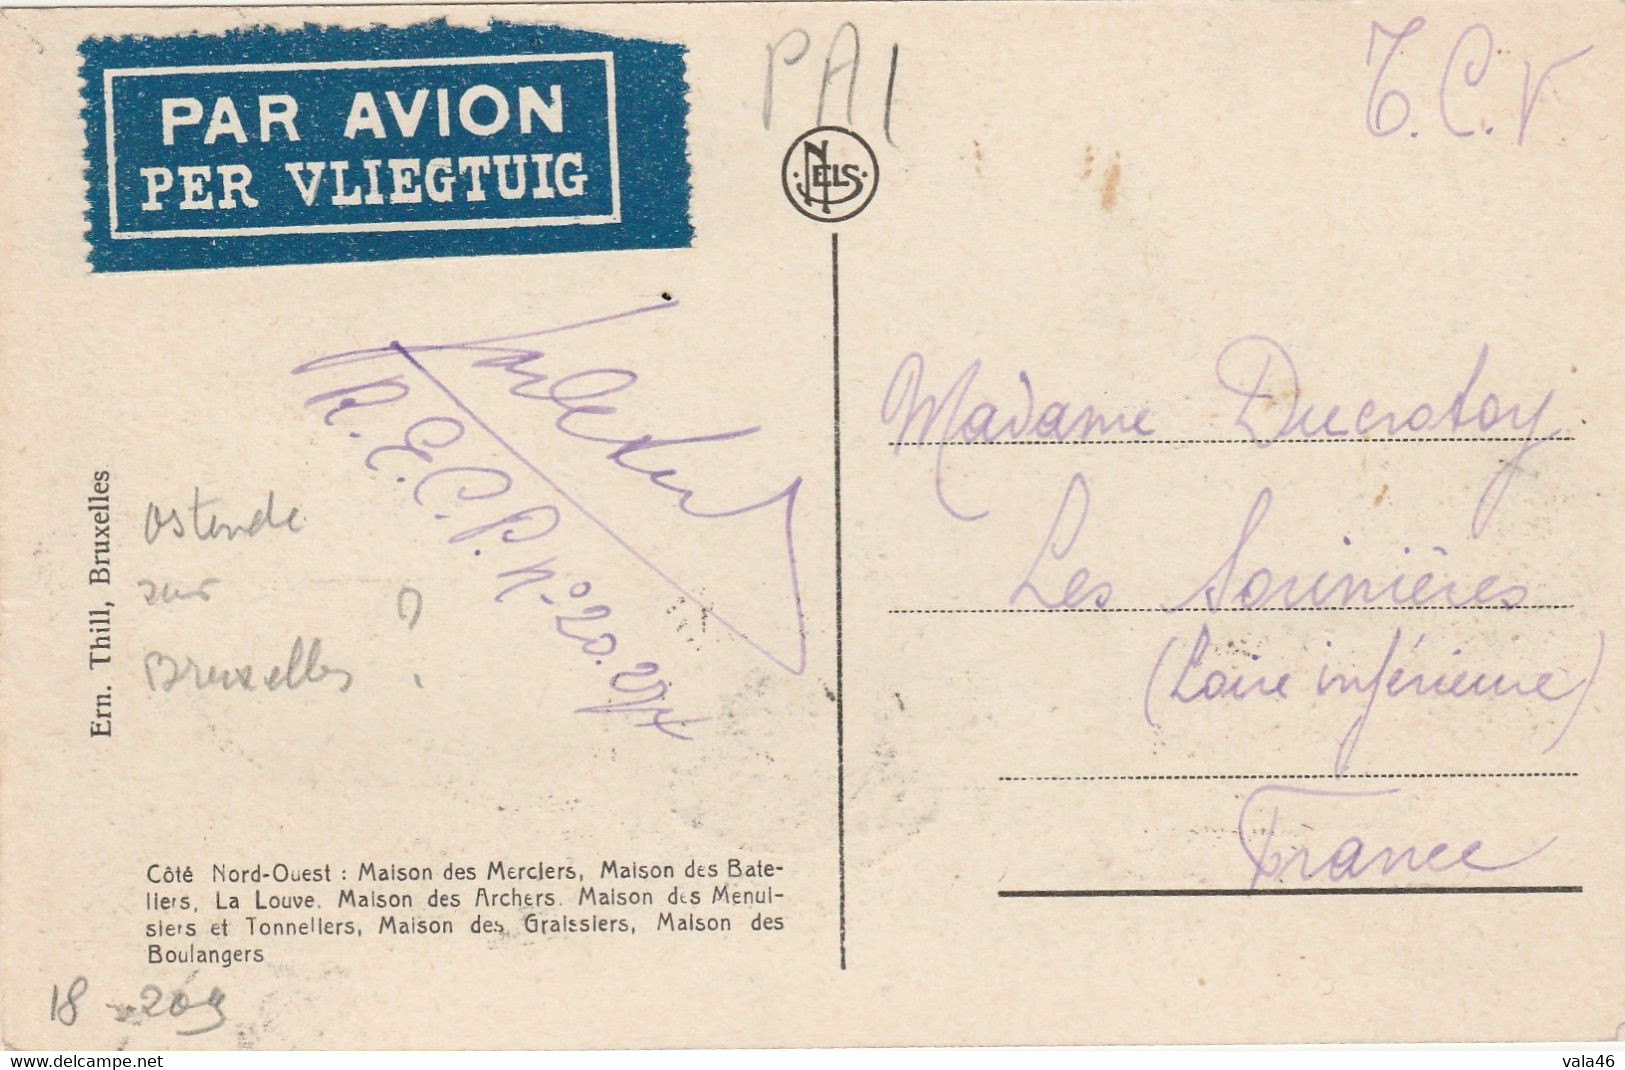 PAR AVION
PER VLIEGTUIG
PA1
NELS
T.C.V
R.E.C.P. N° 20.
Madame Ducrotoy
Les Sorinières
(Loire inférieure)
France
Ern. Thill, Bruxelles
Ostende
sur
Bruxelles ?
Côté Nord-Ouest : Maison des Merciers, Maison des Bate-
liers, La Louve. Maison des Archers. Maison des Menui-
siers et Tonneliers, Maison des Graissiers, Maison des
Boulangers
18 - 209
vala46